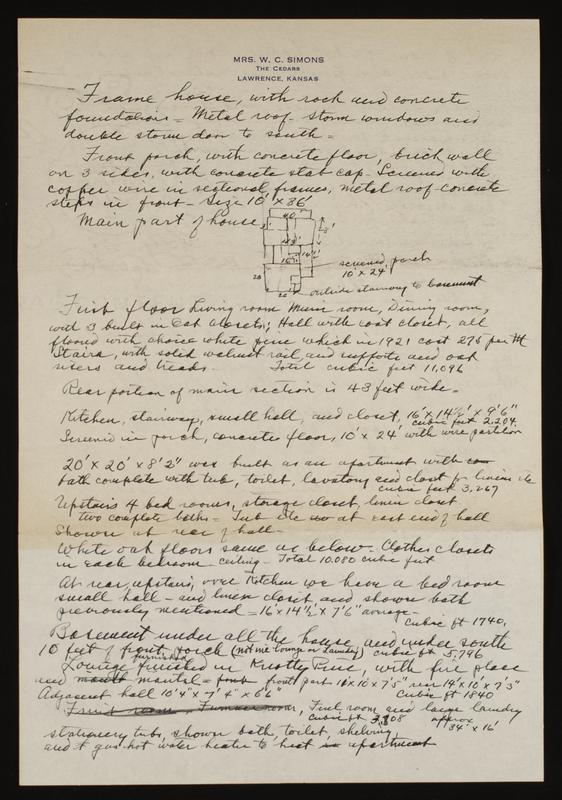 MRS. W. C. SIMONS
THE CEDARS
LAWRENCE, KANSAS
Frame house, with rock and concrete
foundation = Metal roof - storm windows and
double storm door to south =
Front porch, with concrete floor, brick wall
on 3 sides, with concrete slab cap - Screened with
copper wire in sectional frames, metal roof - concrete
steps in front - Size 10' x 36'
Main part of house
40'
screened porch
10' x 24'
20
20'
outside stairway to basement
First floor Living room Music room, Dining room,
with 3 built in Cab closets; Hall with coat closet, all
floored with choice white pine which in 1921 cost 275 per M
Stairs, with solid walnut rail, and supports and oak
risers and treads - Total cubic feet 11,096
Rear portion of main section is 43 feet wide =
Kitchen, stairway, small hall, and closet, 16' x 14½' x 9'6"
cubic feet 2.204.
Screened in porch, concrete floor, 10' x 24' with wire partition
20' x 20' x 8'2" was built as an apartment with
bath complete with tub, toilet, lavatory and closet for linens etc
cubic feet 3,267
Upstairs 4 bed rooms, storage closet, linen closet
two complete baths = Tub etc at east end of hall
Shower at rear of hall =
White oak floors same as below - Clothes closets
in each bedroom. ceiling - Total 10.080 cubic feet
At rear, upstairs, over Kitchen we have a bed room
small hall - and linen closet and shower bath
previously mentioned = 16' x 14½' x 7'6" average -
Cubic ft 1740,
Basement under all the house and under south
10 feet of front porch (not inc lounge or laundry) cubic ft 5,796
Lounge furnished finished in Knotty Pine, with fire place
and mantel = front part 10 x 7'5" rear 14' x 10' x 7'3"
Adjacent hall 10'4" x 7'4" x 6'6" Cubic ft 1840
Fruit room, Furnace room, Fuel room and large laundry
cubic ft 3,308 approx
34' x 16'
stationery tubs, shower bath, toilet, shelving,
and gas hot water heater to heat apartment